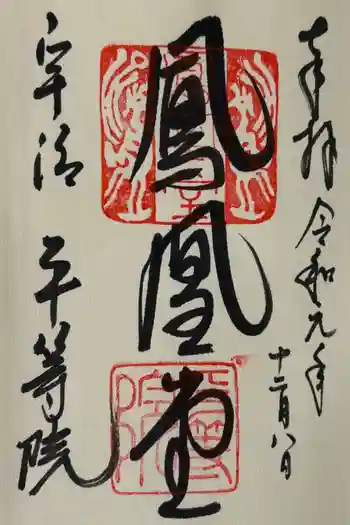 奉拝 令和元年
十二月八日
鳳凰堂
宇治 平等院